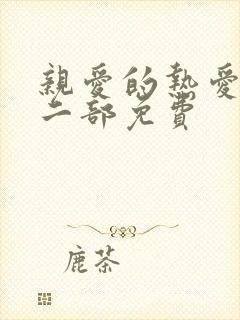 親愛的熱愛
二部免費
鹿茶